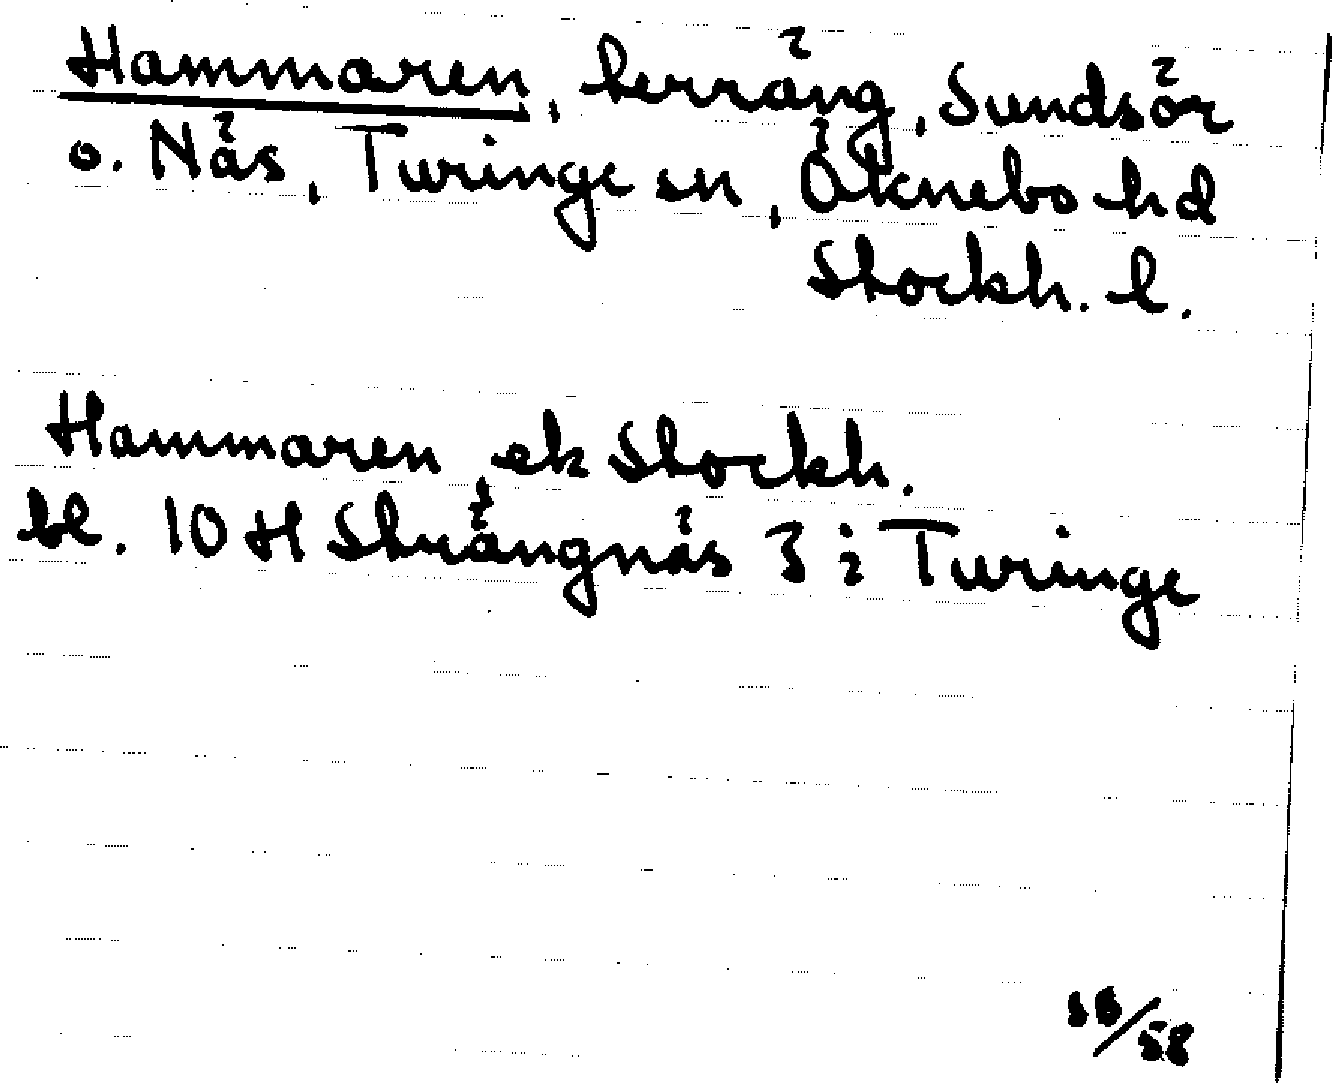 Hammaren, terräng, Sundsör
o. Näs, Turinge sn, Öknebo hd
Stockh. l.
Hammaren, ek Stockh.
bl. 10 H Strängnäs 3 i Turinge
/58